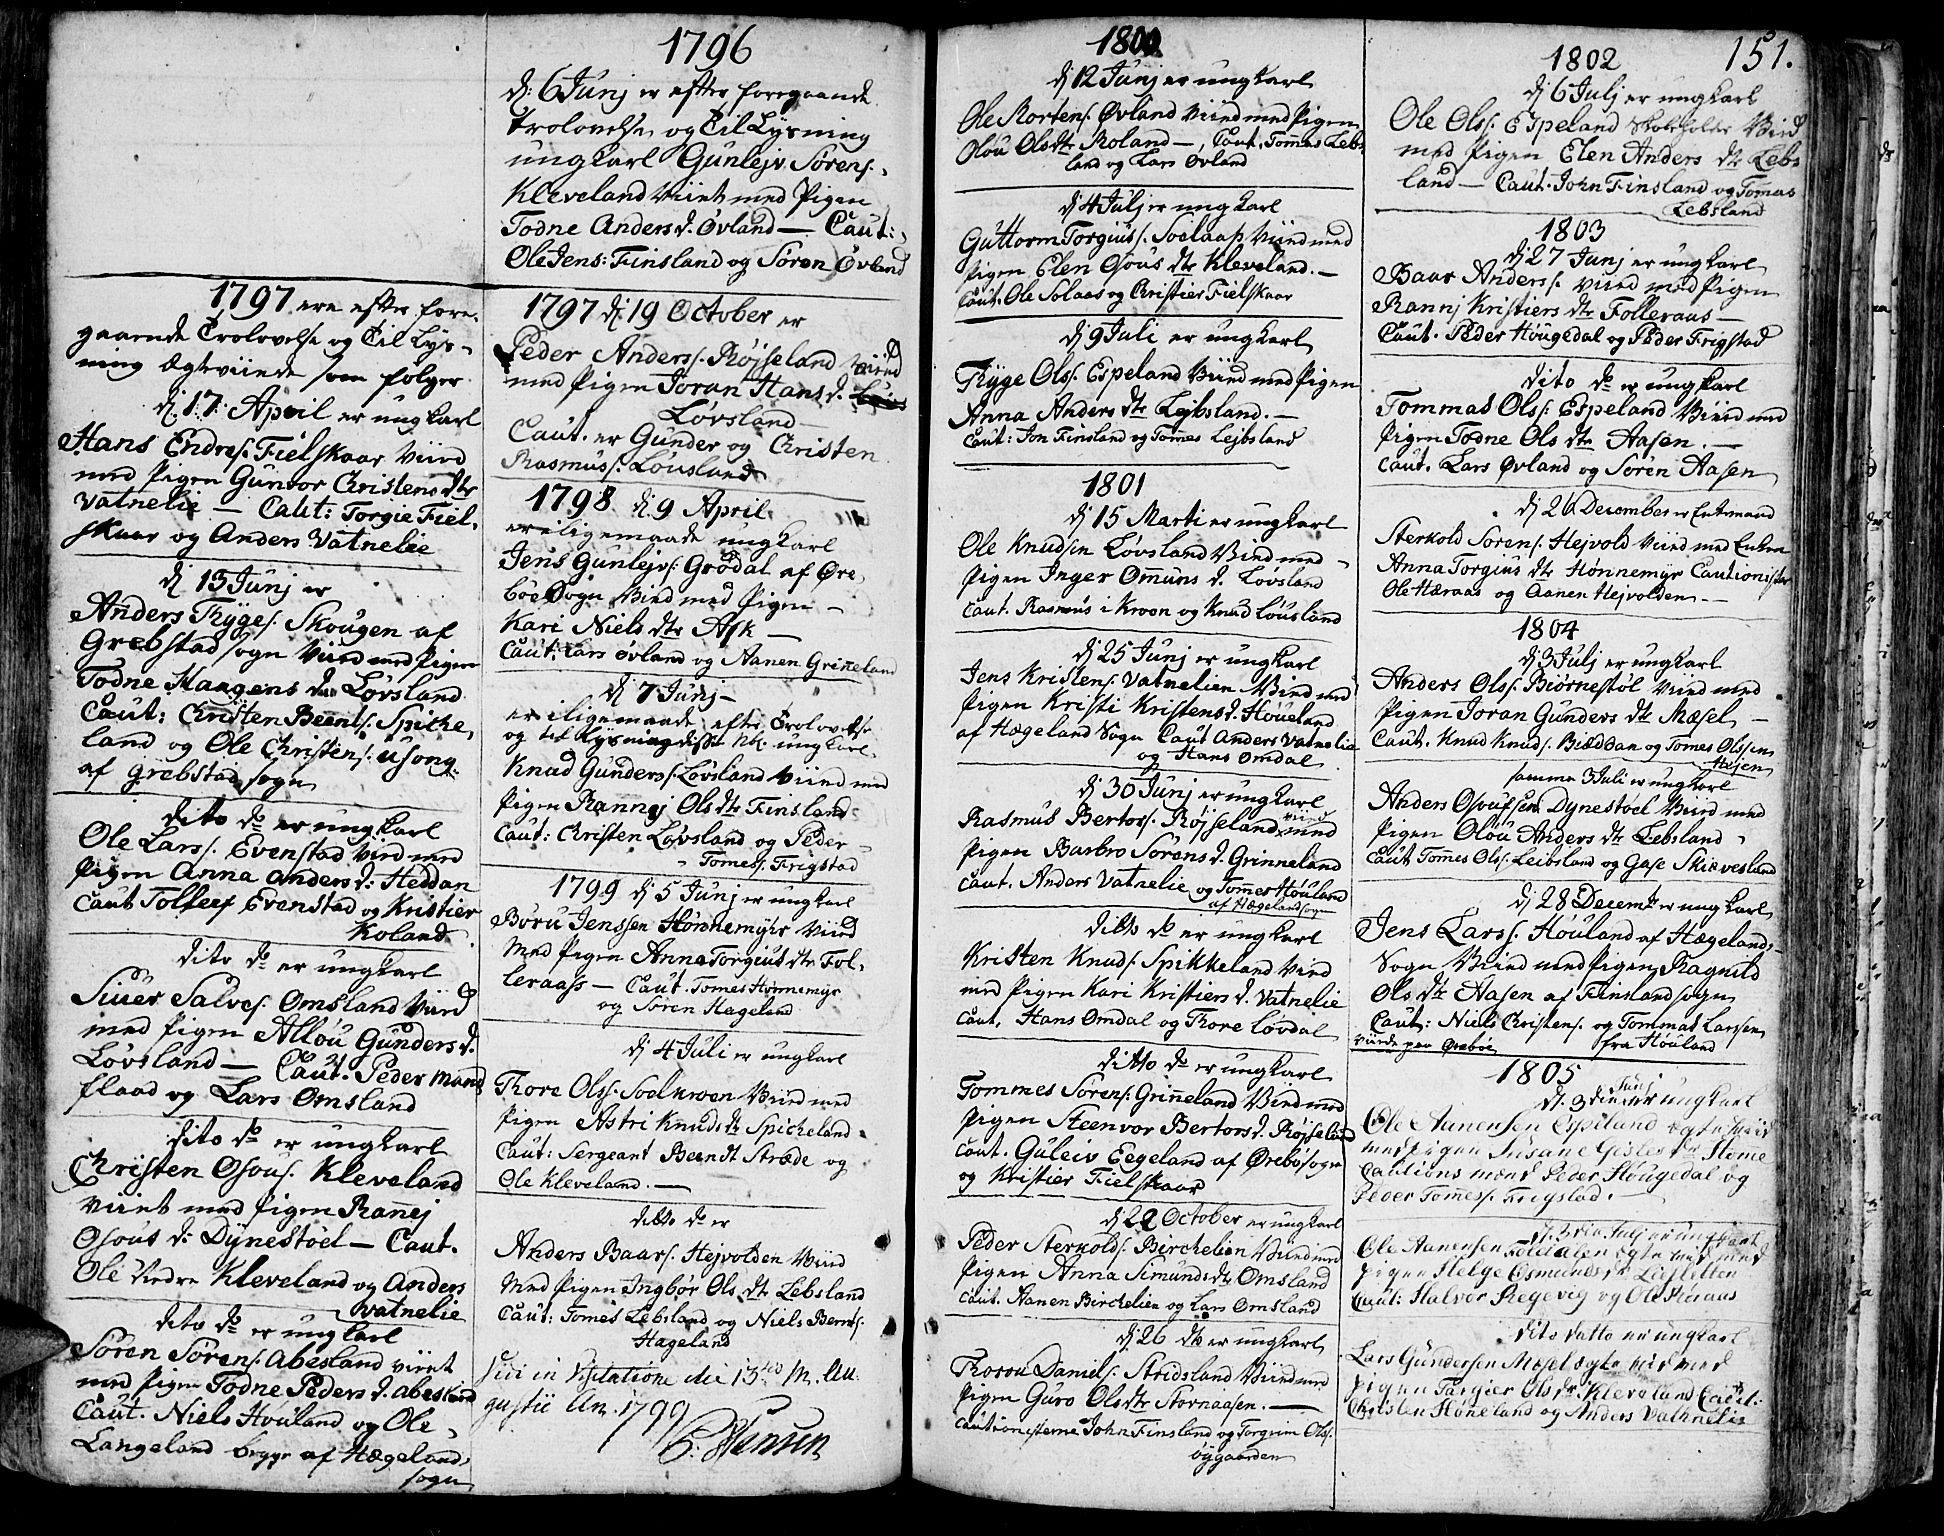 1797 ere efter fore-
gaaende Trolovelse og Til Lys-
ning Ægteviede som følger
dj 17 April er ungkarl
Hans Endres. Fielskaar Viied
med Pigen Gunvor Christens dtr
Vatnelie — Caut: Torgie Fiel-
skaar og Anders Vatnelie
dj 13 Junj er
Anders Tryges. Skougen af
Grebstad sogn Viied med Pigen
Todne Maagens dtr Løvsland
Caut: Christen Beents. Spicke-
land og Ole Christens. Usong
af Grebstad sogn
dito do er ungkarl
Ole Lars. Evenstad Vied med
Pigen Anna Anders d: Heddan
Caut Tollef Evenstad og Kristier
Roland
dito do er ungkarl
Siuer Salves. Omsland Viied
med Pigen Allou Gunders d.
Løvsland — Caut. Peder Mand
flaad og Lars Omsland
dito do er ungkarl
Christen Osous. Kleveland
Viiet med Pigen Ranej
Osous d: Dynestøel — Caut.
Ole Kleveland og Anders
Vatnelie
dito do er ungkarl
Søren Sørens. Abesland viiet
med Pigen Todne Peders d. Abesland
Caut. Niels Houland og Ole
Langeland begge af Hægeland
sogn
1796
dj: 6 Junj er efter foregaaende
Trolovelse og Til Lysning
ungkarl Gunlejv Sørens.
Kleveland Viiet med Pigen
Todne Anders d. Øvland — Caut:
Ole Jens: Finsland og Søren Øvland
1797 dj 19 October er
Peder Anders. Røjseland Viied
med Pigen Joran Hans d.
Løvsland —
Caut. er Gunder og Christen
Rasmus. Løusland
1798 dj 9 April
er iligemaade ungkarl
Jens Gunlejvs. Grødal af Øre-
bøe Sogn Vied med Pigen —
Kari Niels dtr Ask —
Caut: Lars Øvland og Aanen Grineland
dj 7 Junj —
er iligemaade efter Trolovelse
og til Lysning disse Nbr. ungkarl
Knud Gunders. Løvsland Viied med
Pigen Rannej Ols dtr Finsland
Caut: Christen Løvsland og Peder
Tomes. Frigstad
1799 dj 5 Junj er ungkarl
Børu Jenssen Hønnemyhr Viied
Med Pigen Anna Torgius dtr Fol-
leraass — Caut. Tomes Hønnemyr
og Søren Hageland
dj 4 Juli er ungkarl
Thore Ols. Soelkroen Viied med
Pigen Astri Knuds dtr Spickeland
Caut: Sergeant Berndt Strøde og
Ole Kleveland. —
ditto do er
Anders Baars. Hejvolden Viied
Med Pigen Ingbør Ols dtr Lebsland
Caut: Tomes Lebsland og Niels Bernts.
Hageland
Fui in Visitatione die 13tio M. Au
gustii An. 1799
P. Hansen
1800
dj 12 Junj er ungkarl
Ole Mortens. Øvland Viied med Pigen
Olou Ols dtr Roland —, Caut. Tommes Lebs-
land og Lars Øvland
dj 4 Julj er ungkarl
Guttorm Torgius. Soelaas Viied med
Pigen Elen Osous dtr Kleveland. —
Caut. Ole Solaas og Christier Fielskaar
dj 9 Juli er ungkarl
Tryge Ols. Espeland Viied med Pigen
Anna Anders dtr Lejbsland. —
Caut: Jon Finsland og Tommes Lejbsland
1801
dj 15 Marti er ungkarl
Ole Knudsen Løvsland Viied med
Pigen Inger Ommuns d. Lovsland
Caut. Rasmus i Kroen og Knud Løusland
dj 25 Junj er ungkarl
Jens Kristens. Vatnelien Viied med
Pigen Kristi Kristens d. Høueland
af Hægeland Sogn Caut Anders Vatnelie
og Hans Omdal
dj 30 Junj er ungkarl
Rasmus Bertors. Røjseland viied med
Pigen Barbro Sørens d. Grinneland
Caut. Anders Vatnelie og Tomes Houland
af Hægeland sogn
ditto do er ungkarl
Kristen Knuds. Spikkeland Vied
med Pigen Kari Kristiers d. Vatnelie
Caut, Hans Omdal og Thore Løvdal
ditto do er ungkarl
Tommes Sørens. Grineland Viied med
Pigen Steenvor Bertors d. Røjseland
Caut. Guleiv Eegeland af Ørebø sogn
og Kristier Fielskaar
dj 22 October er ungkarl
Peder Sterkolds. Birchelien Viied med
Pigen Anna Simunds dtr Omsland
Caut. Aanen Birchelien og Lars Omsland
dj 26 dto er ungkarl
Thorou Daniels. Stridsland Viied med
Pigen Guro Ols dtr Stornaasen. —
Cautionisterne John Finsland og Torgrim Ols.
Øygaarden
151.
1802
dj 6 Julj er ungkarl
Ole Ols. Espeland Skoleholder Viied
med Pigen Elen Anders dtr Lebs
land — Caut. John Finsland og Tomas
Lebsland
1803
dj 27 Junj er ungkarl
Baar Anders. viied med Pigen
Rannj Kristiers dtr Folleraas —
Caut. Peder Hougedal og Peder Frigstad
dito do er ungkarl
Tommas Ols. Espeland Viied med
Pigen Todne Ols dtr Aasen. —
Caut. Lars Øvland og Søren Aasen
dj 26 December er Enkemand
Sterkold Sørens. Hejvold viied med Enken
Anna Torgius dtr Hønnemyr Cautionister
Ole Haraas og Aanen Hejvolden —
1804
dj 3 Julj er ungkarl
Anders Ols. Biørnestøl viied med
Pigen Joran Gunders dtr Mæsel —
Caut. Knud Knuds. Biæddan og Tomes Olssen
samme 3 Juli er ungkarl
Anders Osoufsen Dynestoel Viied med
Pigen Olou Anders dtr Lebsland
Caut Tommes Ols. Leibsland og Gase Skievesland
dj 28 Decembr er ungkarl
Jens Lars. Høuland af Hægelands
Sogn Viied med Pigen Ragnild
Ols dtr Aasen af Finsland sogn
Caut: Niels Christens. og Tommas Larsen
viede paa Ørebøe fra Høuland
1805
dj. 3 die Junj er ungkarl
Ole Aanensen Espeland egte viid
med pigen Susane Gisles dtr Home
Cautions mænd Peder Hougedal og
Peder Tomes. Frigstad. —
d. 3 die Julj er ungkarl
Ole Aanensen Foldalen egte viid med
pigen Helge Osmunds dtr Liesletten
Caut: Halvor Regevig og Ole Haraas
dito datto er ungkarl
Lars Gundersen Møsel egte viid med
pigen Targier Ols dtr Kleveland Caut:
Christen Høneland og Anders Vatnelie